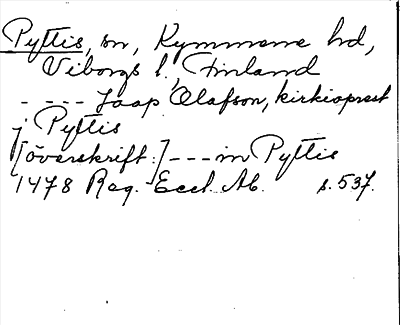 Pyttis, sn, Kymmene hd,
Viborgs l., Finland
- - - - Jaap Olafson, kirkioprest
j Pyttis
[överskrift:] - - - in Pyttis
1478 Reg. Eccl. Ab. s. 537.